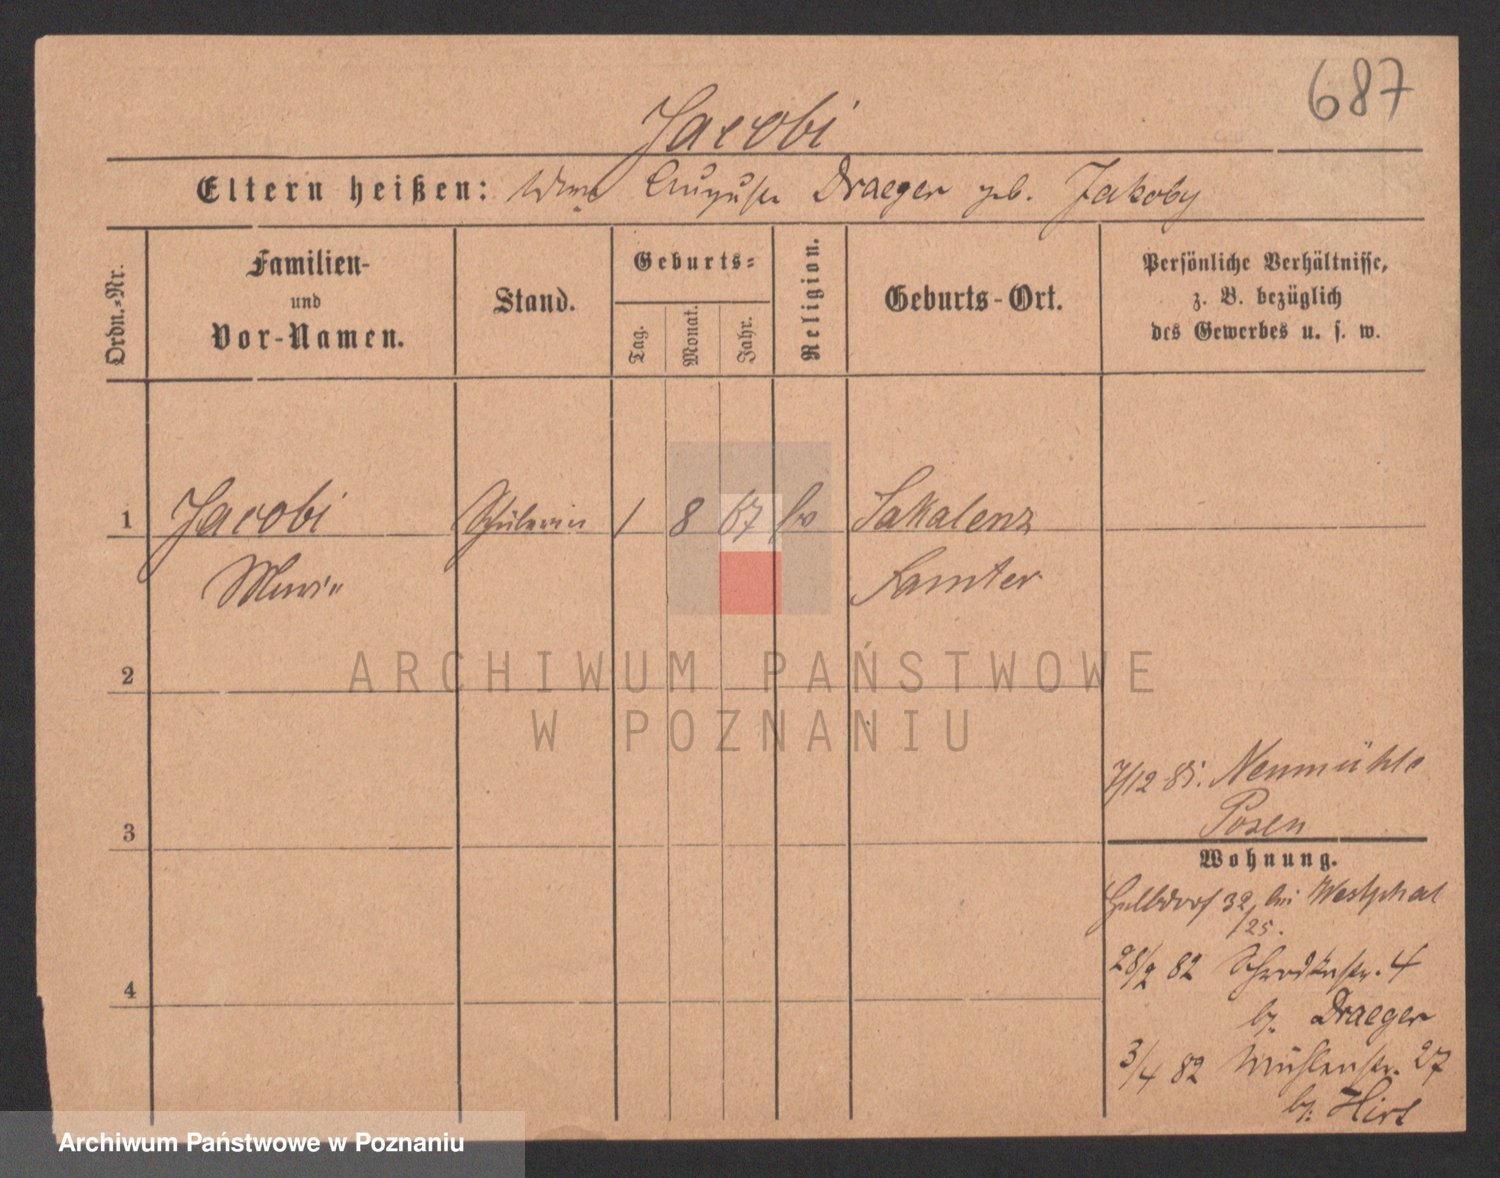 687
Jacobi
Eltern heißen: Wwe Auguste Draeger geb. Jakoby
Ordn.-Nr.
Familien-
und
Vor-Namen.
Stand.
Geburts-
Tag.
Monat.
Jahr.
Religion.
Geburts-Ort.
Persönliche Verhältnisse,
z. B. bezüglich
des Gewerbes u. s. w.
1 Jacobi Schülerin 1 8 67 ev Sakalenz
Samter
2
ARCHIWUM PAŃSTWOWE
W POZNANIU
7/12 81. Neumühle
Posen
3
Wohnung.
32 bei Westphal
/25.
28/2 82 4
4
b. Draeger
3/4 82 Mühlenstr. 27
b. Hirt
Archiwum Państwowe w Poznaniu